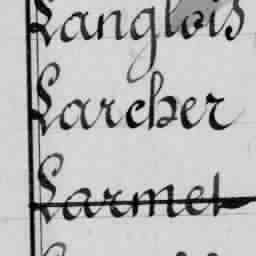 Langlois
Larcher
Larmet